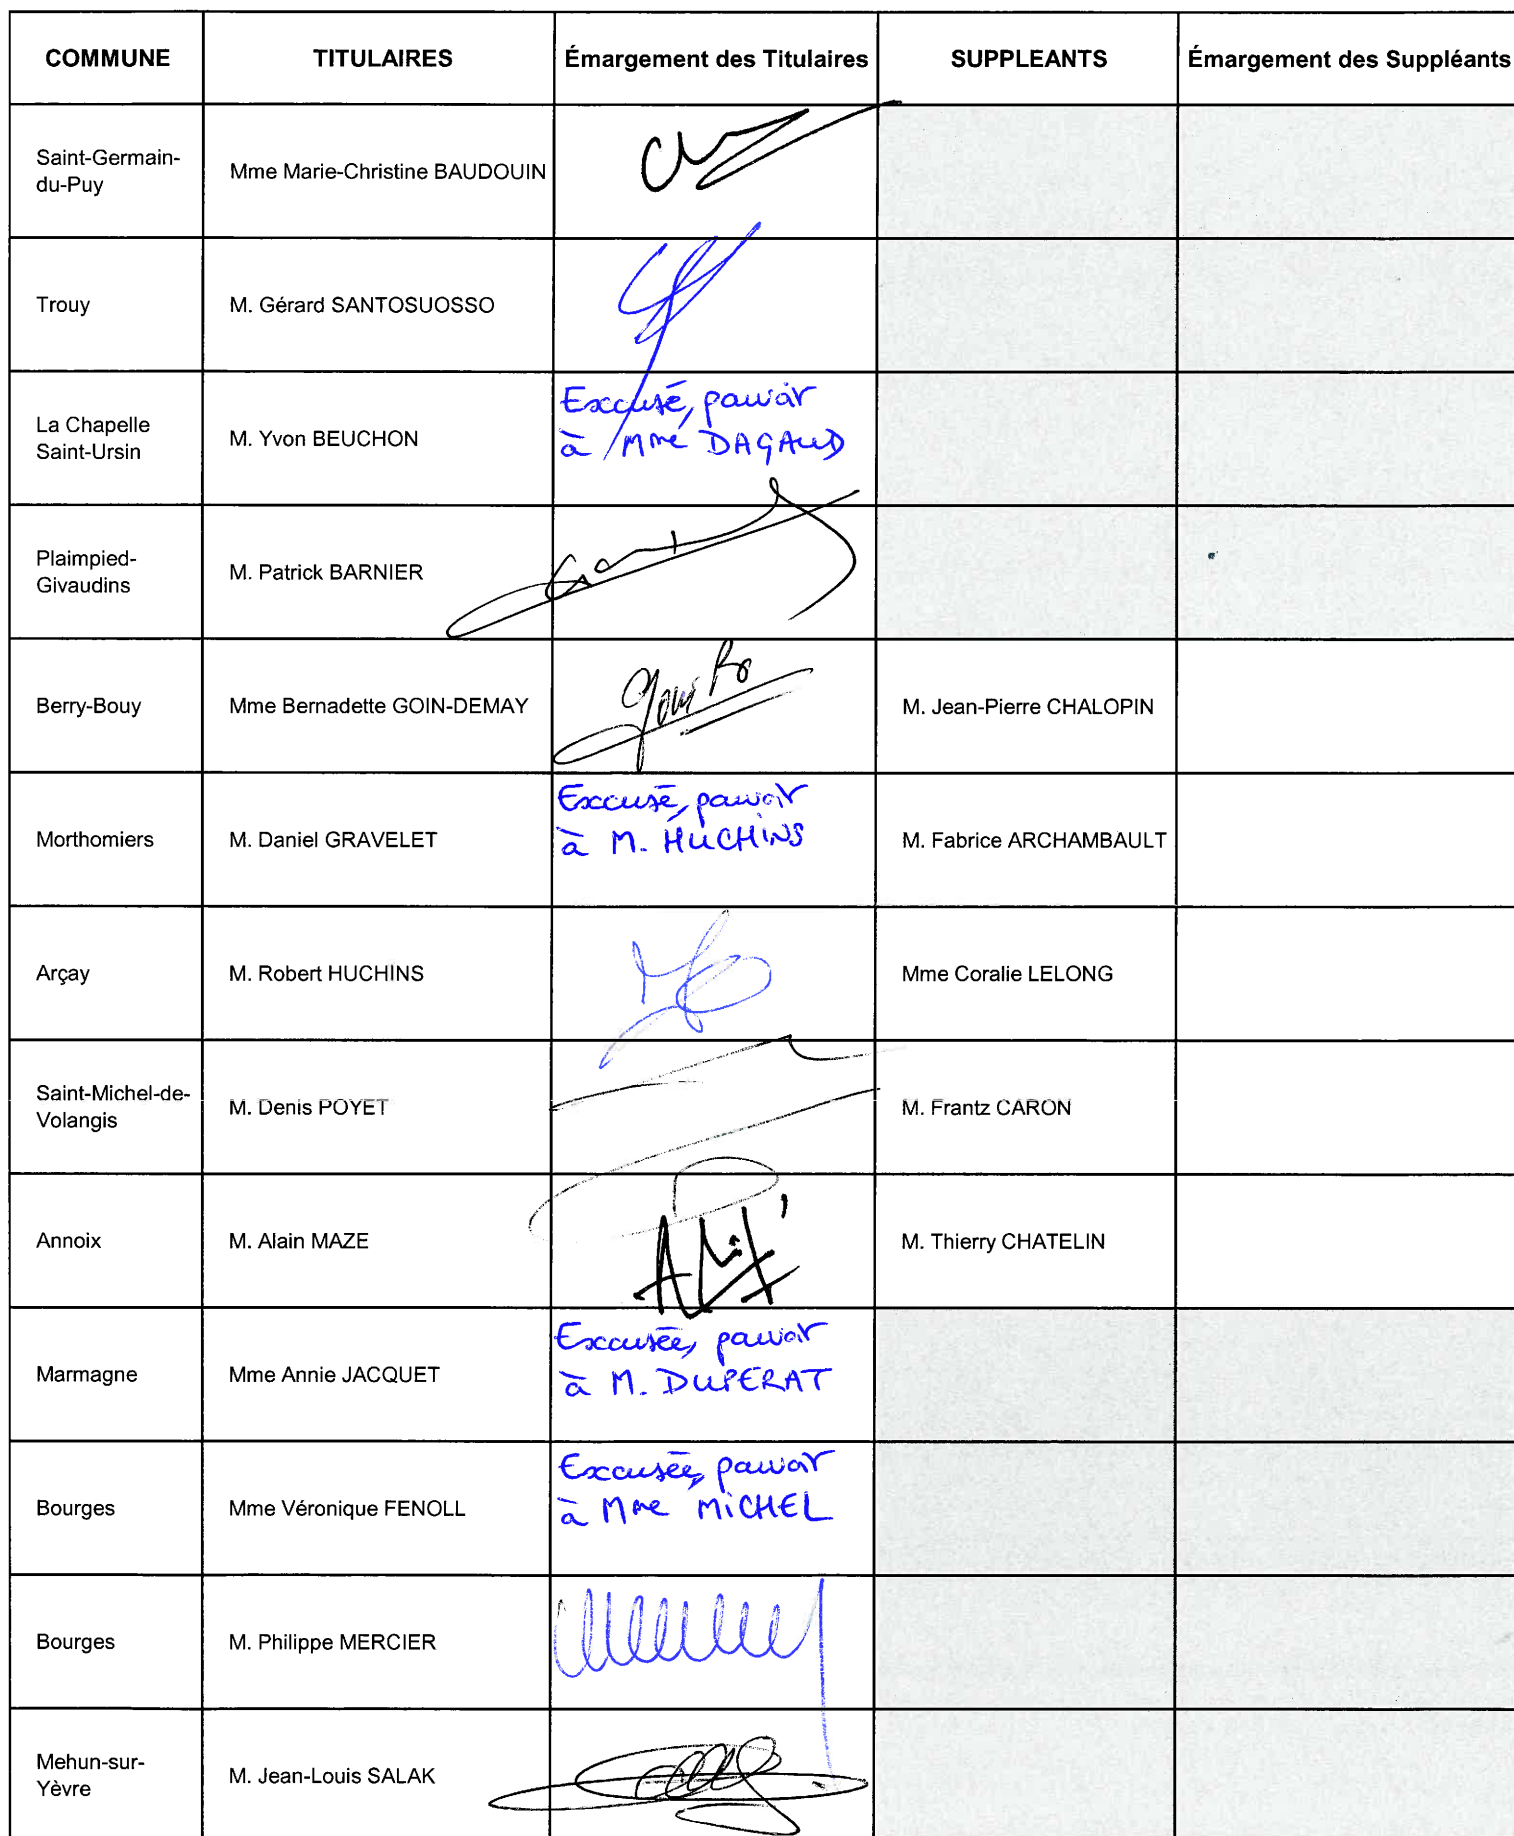 COMMUNE TITULAIRES Émargement des Titulaires SUPPLEANTS Émargement des Suppléants
Saint-Germain-
du-Puy
Mme Marie-Christine BAUDOUIN
Trouy
M. Gérard SANTOSUOSSO
La Chapelle
Saint-Ursin
M. Yvon BEUCHON
Excusé, pouvoir
à Mme DAGAUD
Plaimpied-
Givaudins
M. Patrick BARNIER
Berry-Bouy
Mme Bernadette GOIN-DEMAY
M. Jean-Pierre CHALOPIN
Morthomiers
M. Daniel GRAVELET
Excusé, pouvoir
à M. HUCHINS
M. Fabrice ARCHAMBAULT
Arçay
M. Robert HUCHINS
Mme Coralie LELONG
Saint-Michel-de-
Volangis
M. Denis POYET
M. Frantz CARON
Annoix
M. Alain MAZE
M. Thierry CHATELIN
Marmagne
Mme Annie JACQUET
Excusée, pouvoir
à M. DUPERAT
Bourges
Mme Véronique FENOLL
Excusée, pouvoir
à Mme MICHEL
Bourges
M. Philippe MERCIER
Mehun-sur-
Yèvre
M. Jean-Louis SALAK